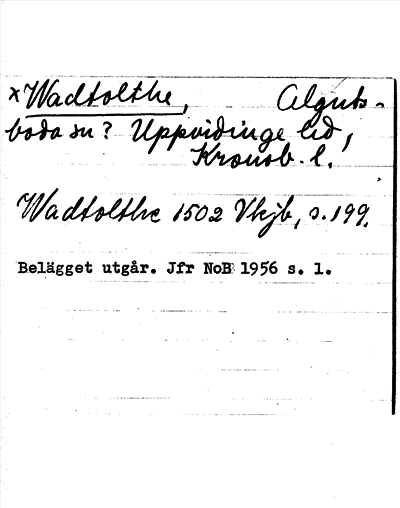 ×Wadtolthe, Alguts-
boda sn? Uppvidinge hd,
Kronob. l.
Wadtolthe 1502 Vkjb, s. 199.
Belägget utgår. Jfr NoB 1956 s. 1.